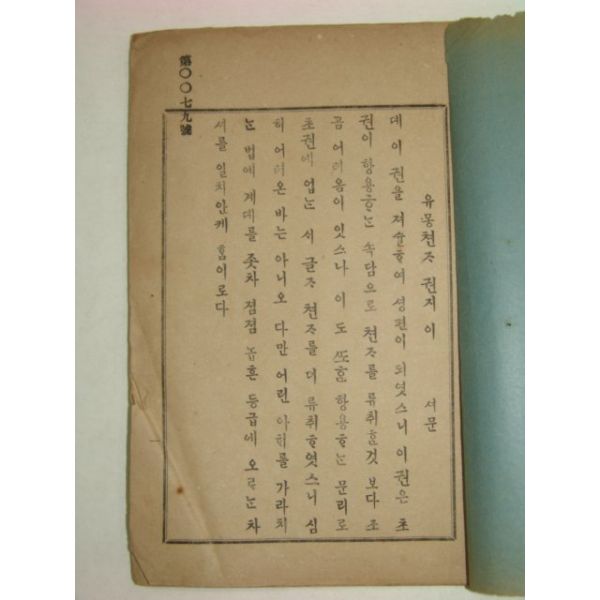 유몽쳔ᄌᆞ 권지이 셔문
데 이 권을 져슐ᄒᆞ여 셩편이 되엿스니 이 권은 초
권이 항용ᄒᆞᄂᆞᆫ 속담으로 쳔ᄌᆞ를 류취ᄒᆞᆫ것 보다 조
곰 어려옴이 잇스나 이 도 ᄯᅩᄒᆞᆫ 항용ᄒᆞᄂᆞᆫ 문리로
초권에 업ᄂᆞᆫ 글ᄌᆞ 쳔ᄌᆞ를 더 류취ᄒᆞ엿스니 심
히 어려온 바는 아니오 다만 어린 아ᄒᆡ를 가라치
ᄂᆞᆫ 법에 계데를 좃차 졈졈 놉흔 등급에 오르ᄂᆞᆫ 차
셔를 일치 안케 홈이로다
第〇〇七九號